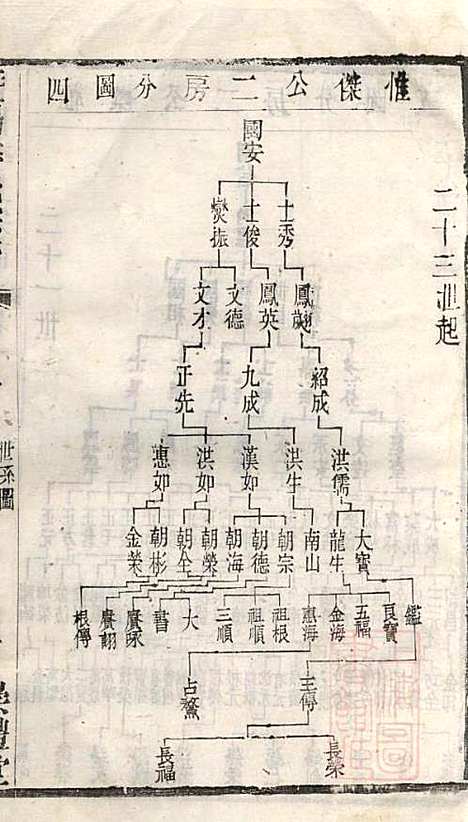 惟傑公二房分圖四
二十三世起
國安
士秀 士俊 燮振
鳳翽 鳳英 文德 文才
紹成 九成 正先
洪儒 洪生 漢如 洪如 惠如
大寶 龍生 南山 朝宗 朝德 朝海 朝榮 朝全 朝彬 金榮
鑑 良寶 五福 金海 惠海 祖根 祖順 三順 大 書 賡颺 賡詡 根傳
玉傳 占鰲
長榮 長福
世系圖